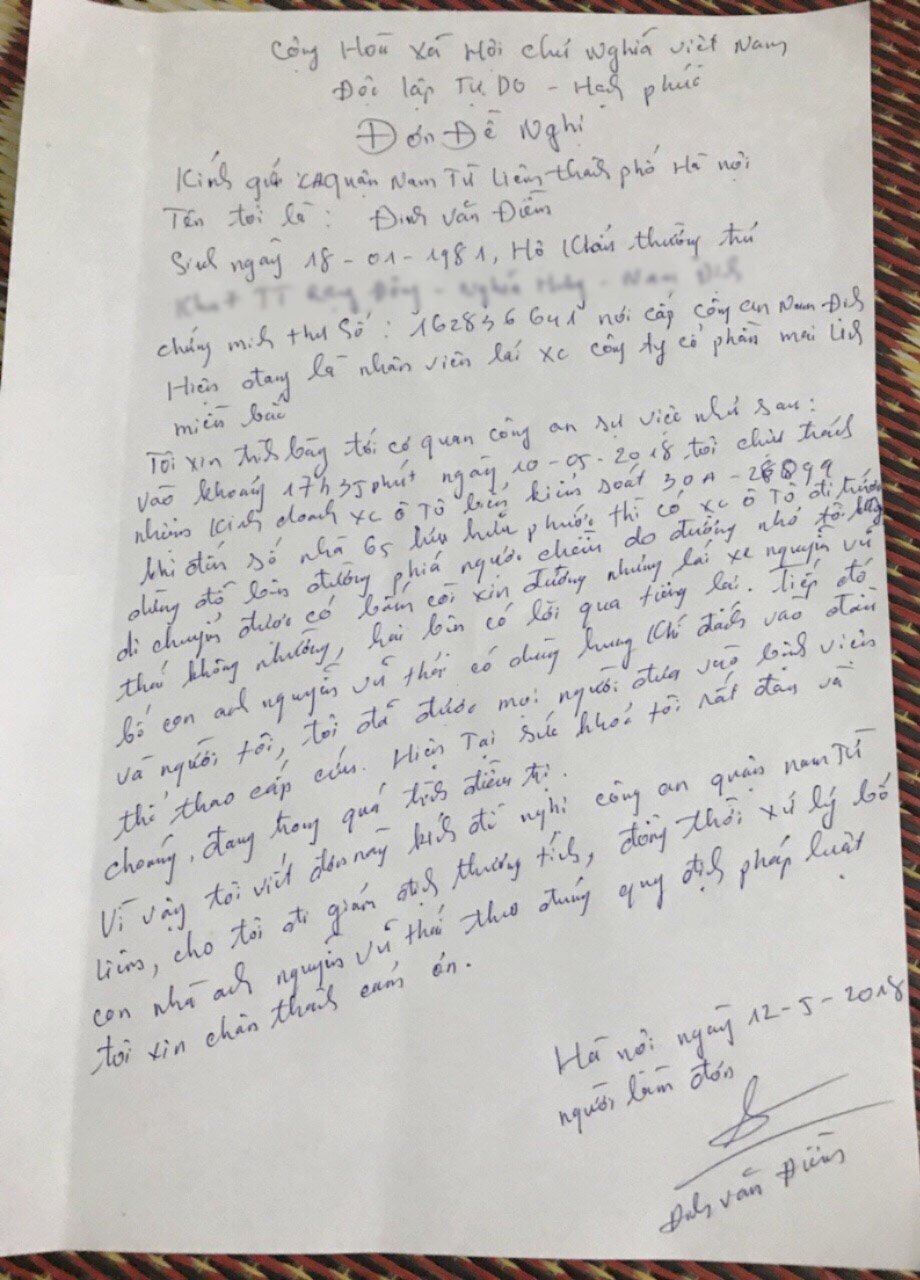 Cộng Hoà xã Hội chủ Nghĩa việt Nam
Độc lập Tự DO - Hạnh phúc
Đơn Đề Nghị
Kính gửi CAQuận Nam Từ Liêm thành phố Hà nội
Tên tôi là : Đinh Văn Điềm
Sinh ngày 18-01-1981, Hộ Khẩu thường trú
TT - Nghĩa Hưng - Nam Định
chứng minh thư số : 162836641 nơi cấp công an Nam Định
Hiện đang là nhân viên lái xe công ty cổ phần mai linh
miền bắc
Tôi xin trình bày tới cơ quan công an sự việc như sau :
vào khoảng 17h35phút ngày 10-05-2018 tôi chịu trách
nhiệm Kinh doanh xe ô Tô biển kiểm soát 30A-
khi đến số nhà 65 hữu phước thì có xe ô Tô đi trước
dừng đỗ bên đường phía ngược chiều do đường nhỏ tôi không
di chuyển được có bấm còi xin đường nhưng lái xe nguyễn vũ
thái không nhường, hai bên có lời qua tiếng lại. Tiếp đó
bố con anh nguyễn vũ thái có dùng hung khí đánh vào đầu
và người tôi, tôi đã được mọi người đưa vào bệnh viện
thể thao cấp cứu. Hiện Tại sức khoẻ tôi rất đau và
choáng, đang trong quá trình điều trị.
Vì vậy tôi viết đơn này kính đề nghị công an quận nam Từ
liêm, cho tôi đi giám định thương tích, đồng thời xử lý bố
con nhà anh nguyễn vũ thái theo đúng quy định pháp luật.
tôi xin chân thành cảm ơn.
Hà nội ngày 12-5-2018
người làm đơn
Đinh văn Điềm